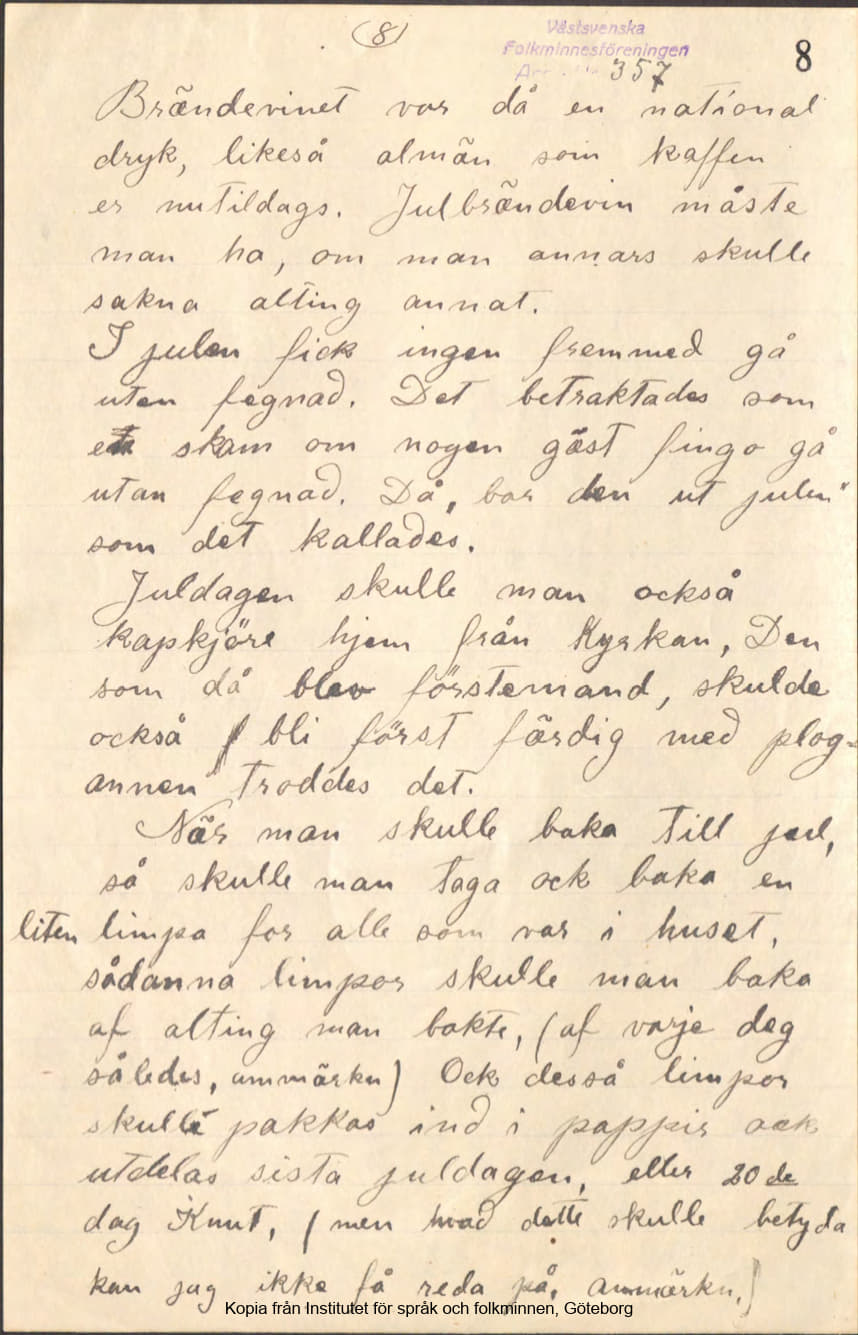 (8)
Västsvenska
Folkminnesföreningen
357
8
Brändevinet var då en national
dryk, likeså almän som kaffen
er nutildags. Julbrändevin måste
man ha, om man annars skulle
sakna alting annat.
I julen fick ingen fremmed gå
uten fegnad. Det betraktades som
en skam om nogen gäst fingo gå
utan fegnad. Då "bar den ut julen"
som det kallades.
Juldagen skulle man också
kapkjöre hjem från Kyrkan, Den
som då blev förstemand, skulde
också bli först färdig med plog-
annen troddes det.
När man skulle baka till jul,
så skulle man taga ock baka en
liten limpa for alle som var i huset,
sådanna limpor skulle man baka
af alting man bakte, (af varje deg
således, anmärkn) Ock desså limpor
skulle pakkas ind i pappir ock
utdelas sista juldagen, eller 20de
dag Knut, (men hvad dette skulle betyda
kan jag ikke få reda på. Anmärkn.)
Kopia från Institutet för språk och folkminnen, Göteborg